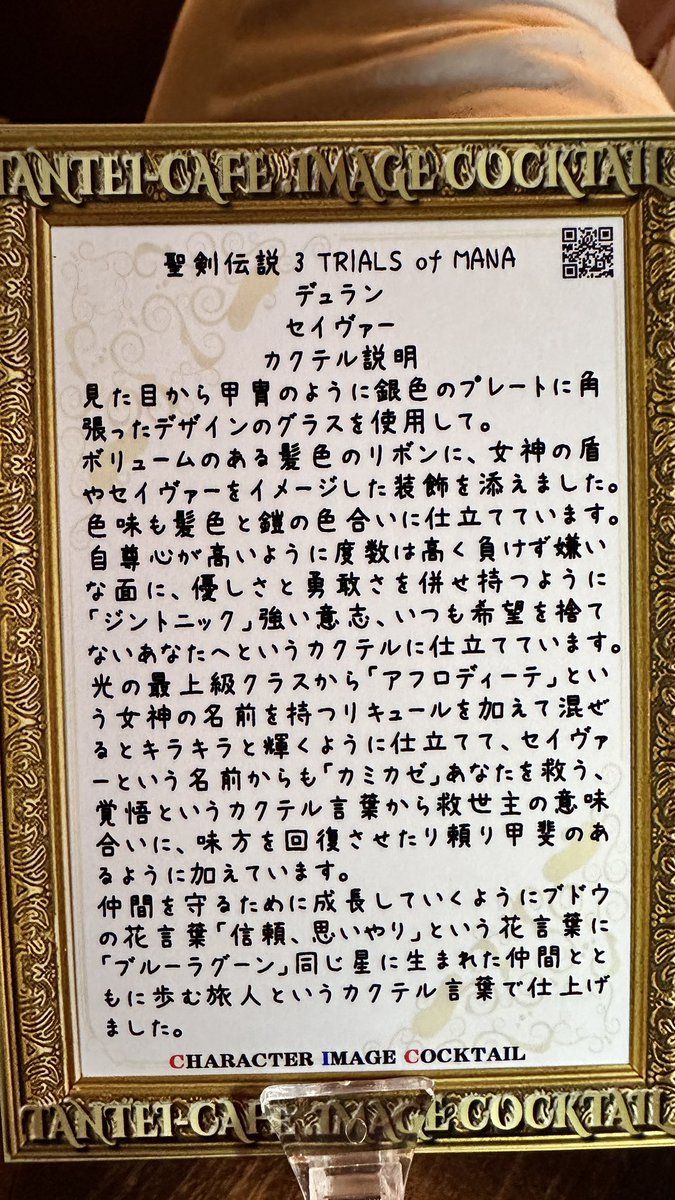 TANTEI-CAFE IMAGE COCKTAIL
聖剣伝説3 TRIALS of MANA
デュラン
セイヴァー
カクテル説明
見た目から甲冑のように銀色のプレートに角
張ったデザインのグラスを使用して。
ボリュームのある髪色のリボンに、女神の盾
やセイヴァーをイメージした装飾を添えました。
色味も髪色と鎧の色合いに仕立てています。
自尊心が高いように度数は高く負けず嫌い
な面に、優しさと勇敢さを併せ持つように
「ジントニック」強い意志、いつも希望を捨て
ないあなたへというカクテルに仕立てています。
光の最上級クラスから「アフロディーテ」とい
う女神の名前を持つリキュールを加えて混ぜ
るとキラキラと輝くように仕立てて、セイヴァ
ーという名前からも「カミカゼ」あなたを救う、
覚悟というカクテル言葉から救世主の意味
合いに、味方を回復させたり頼り甲斐のあ
るように加えています。
仲間を守るために成長していくようにブドウ
の花言葉「信頼、思いやり」という花言葉に
「ブルーラグーン」同じ星に生まれた仲間とと
もに歩む旅人というカクテル言葉で仕上げ
ました。
CHARACTER IMAGE COCKTAIL
TANTEI-CAFE IMAGE COCKTAIL